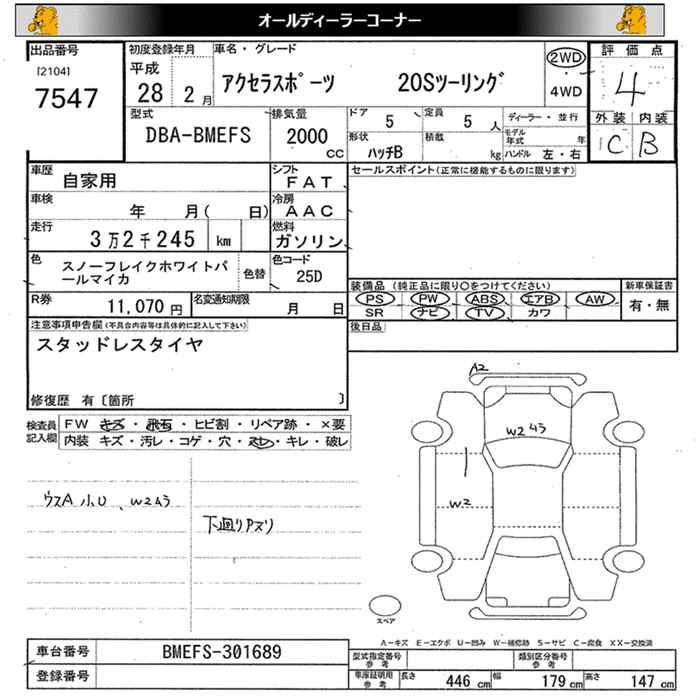 オールディーラーコーナー
出品番号
[2104]
7547
初度登録年月
平成
28 2月
車名・グレード
アクセラスポーツ 20Sツーリング
2WD
4WD
評価点
4
外装 内装
C B
型式
DBA-BMEFS
排気量
2000
CC
ドア
5
定員
5 人
形状
ハッチB
積載
kg
ディーラー・並行
モデル年式 年
ハンドル 左・右
車歴
自家用
シフト
FAT
車検
年 月( 日)
冷房
AAC
走行
3万2千245 km
燃料
ガソリン
色
スノーフレイクホワイトパールマイカ
色替
色コード
25D
R券
11,070円
名変通知期限
月 日
セールスポイント(正常に機能するものに限ります)
装備品(純正品に限り○をつけてください)
PS PW ABS エアB AW
SR ナビ TV カワ
新車保証書
有・無
後日品
注意事項申告欄(不具合内容等は具体的に記入して下さい)
スタッドレスタイヤ
修復歴 有〔箇所 〕
検査員記入欄
FW キズ・飛石・ヒビ割・リペア跡・×要
内装 キズ・汚レ・コゲ・穴・スレ・キレ・破レ
ウスA 小U、W2ムラ
下廻りPスリ
A2
W2ムラ
W2
スペア
A―キズ E―エクボ U―凹み W―補修跡 S―サビ C―腐食 XX―交換済
車台番号
BMEFS-301689
登録番号
型式指定番号
参考
類別区分番号
参考
車庫証明用
参考
長さ 446 cm
幅 179 cm
高さ 147 cm